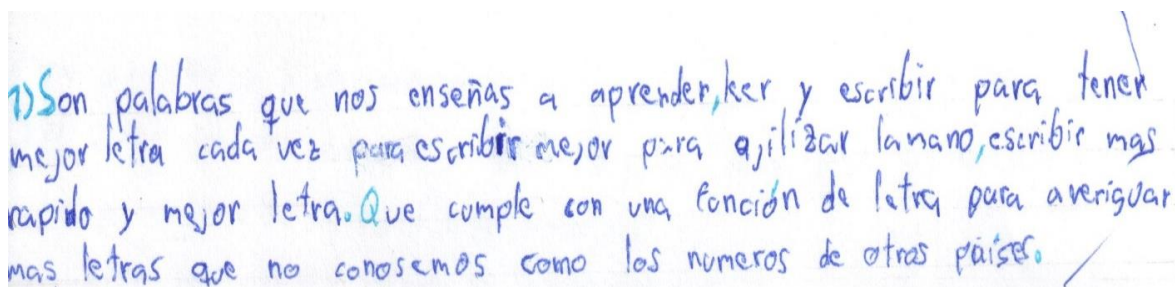 1) Son palabras que nos enseñas a aprender, leer y escribir para tener
mejor letra cada vez para escribir mejor para ajilizar lamano, escribir mas
rapido y mejor letra. Que cumple con una función de letra para averiguar
mas letras que no conosemos como los numeros de otros países.